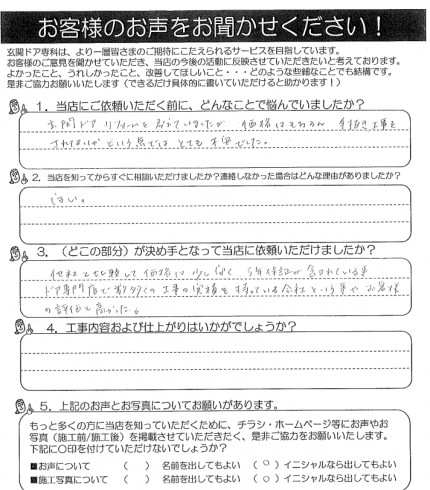 お客様のお声をお聞かせください！
玄関ドア専科は、より一層皆さまのご期待にこたえられるサービスを目指しています。
お客様のご意見を聞かせていただき、当店の今後の活動に反映させていただきたいと考えております。
よかったこと、うれしかったこと、改善してほしいこと・・・どのような些細なことでも結構です。
是非ご協力お願いいたします（できるだけ具体的に書いていただけると助かります！）
1．当店にご依頼いただく前に、どんなことで悩んでいましたか？
玄関ドア リフォームを考えていましたが 価格はもちろん 手抜き工事を
されないかという点ではとても不安でした。
2．当店を知ってからすぐに相談いただけましたか？連絡しなかった場合はどんな理由がありましたか？
はい。
3．（どこの部分）が決め手となって当店に依頼いただけましたか？
他社と比較して価格は少し安く 5年保証が含まれている事
ドア専門店で数多くの工事の実績を持っている会社という事や お客様
の評価も高かった。
4．工事内容および仕上がりはいかがでしょうか？
5．上記のお声とお写真についてお願いがあります。
もっと多くの方に当店を知っていただくために、チラシ・ホームページ等にお声やお
写真（施工前/施工後）を掲載させていただきたく、是非ご協力をお願いいたします。
下記に〇印を付けていただけないでしょうか？
■お声について （ ） 名前を出してもよい （〇）イニシャルなら出してもよい
■施工写真について （ ） 名前を出してもよい （〇）イニシャルなら出してもよい